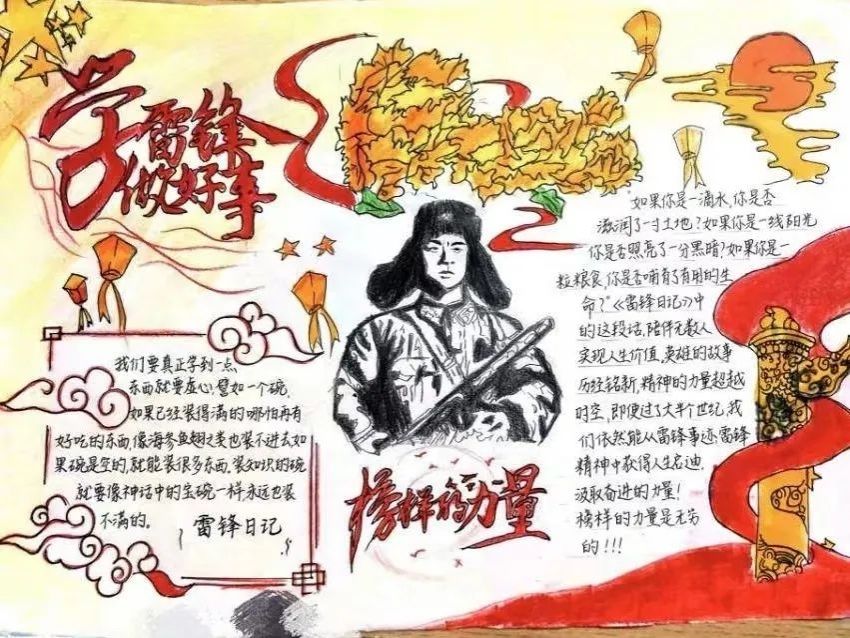 学雷锋
做好事
我们要真正学到一点
东西就要虚心,譬如一个碗,
如果已经装得满的哪怕再有
好吃的东西,像海参鱼翅之类也装不进去,如
果碗是空的,就能装很多东西,装知识的碗
就要像神话中的宝碗一样永远也装
不满的。
雷锋日记
榜样的力量
"如果你是一滴水,你是否
滋润了一寸土地?如果你是一线阳光
你是否照亮了一分黑暗?如果你是一
粒粮食,你是否哺育了有用的生
命?"《雷锋日记》中
的这段话,陪伴无数人
实现人生价值,英雄的故事
历经铭新,精神的力量超越
时空,即便过了大半个世纪,我
们依然能从雷锋事迹,雷锋
精神中获得人生启迪,
汲取奋进的力量!
榜样的力量是无穷
的!!!